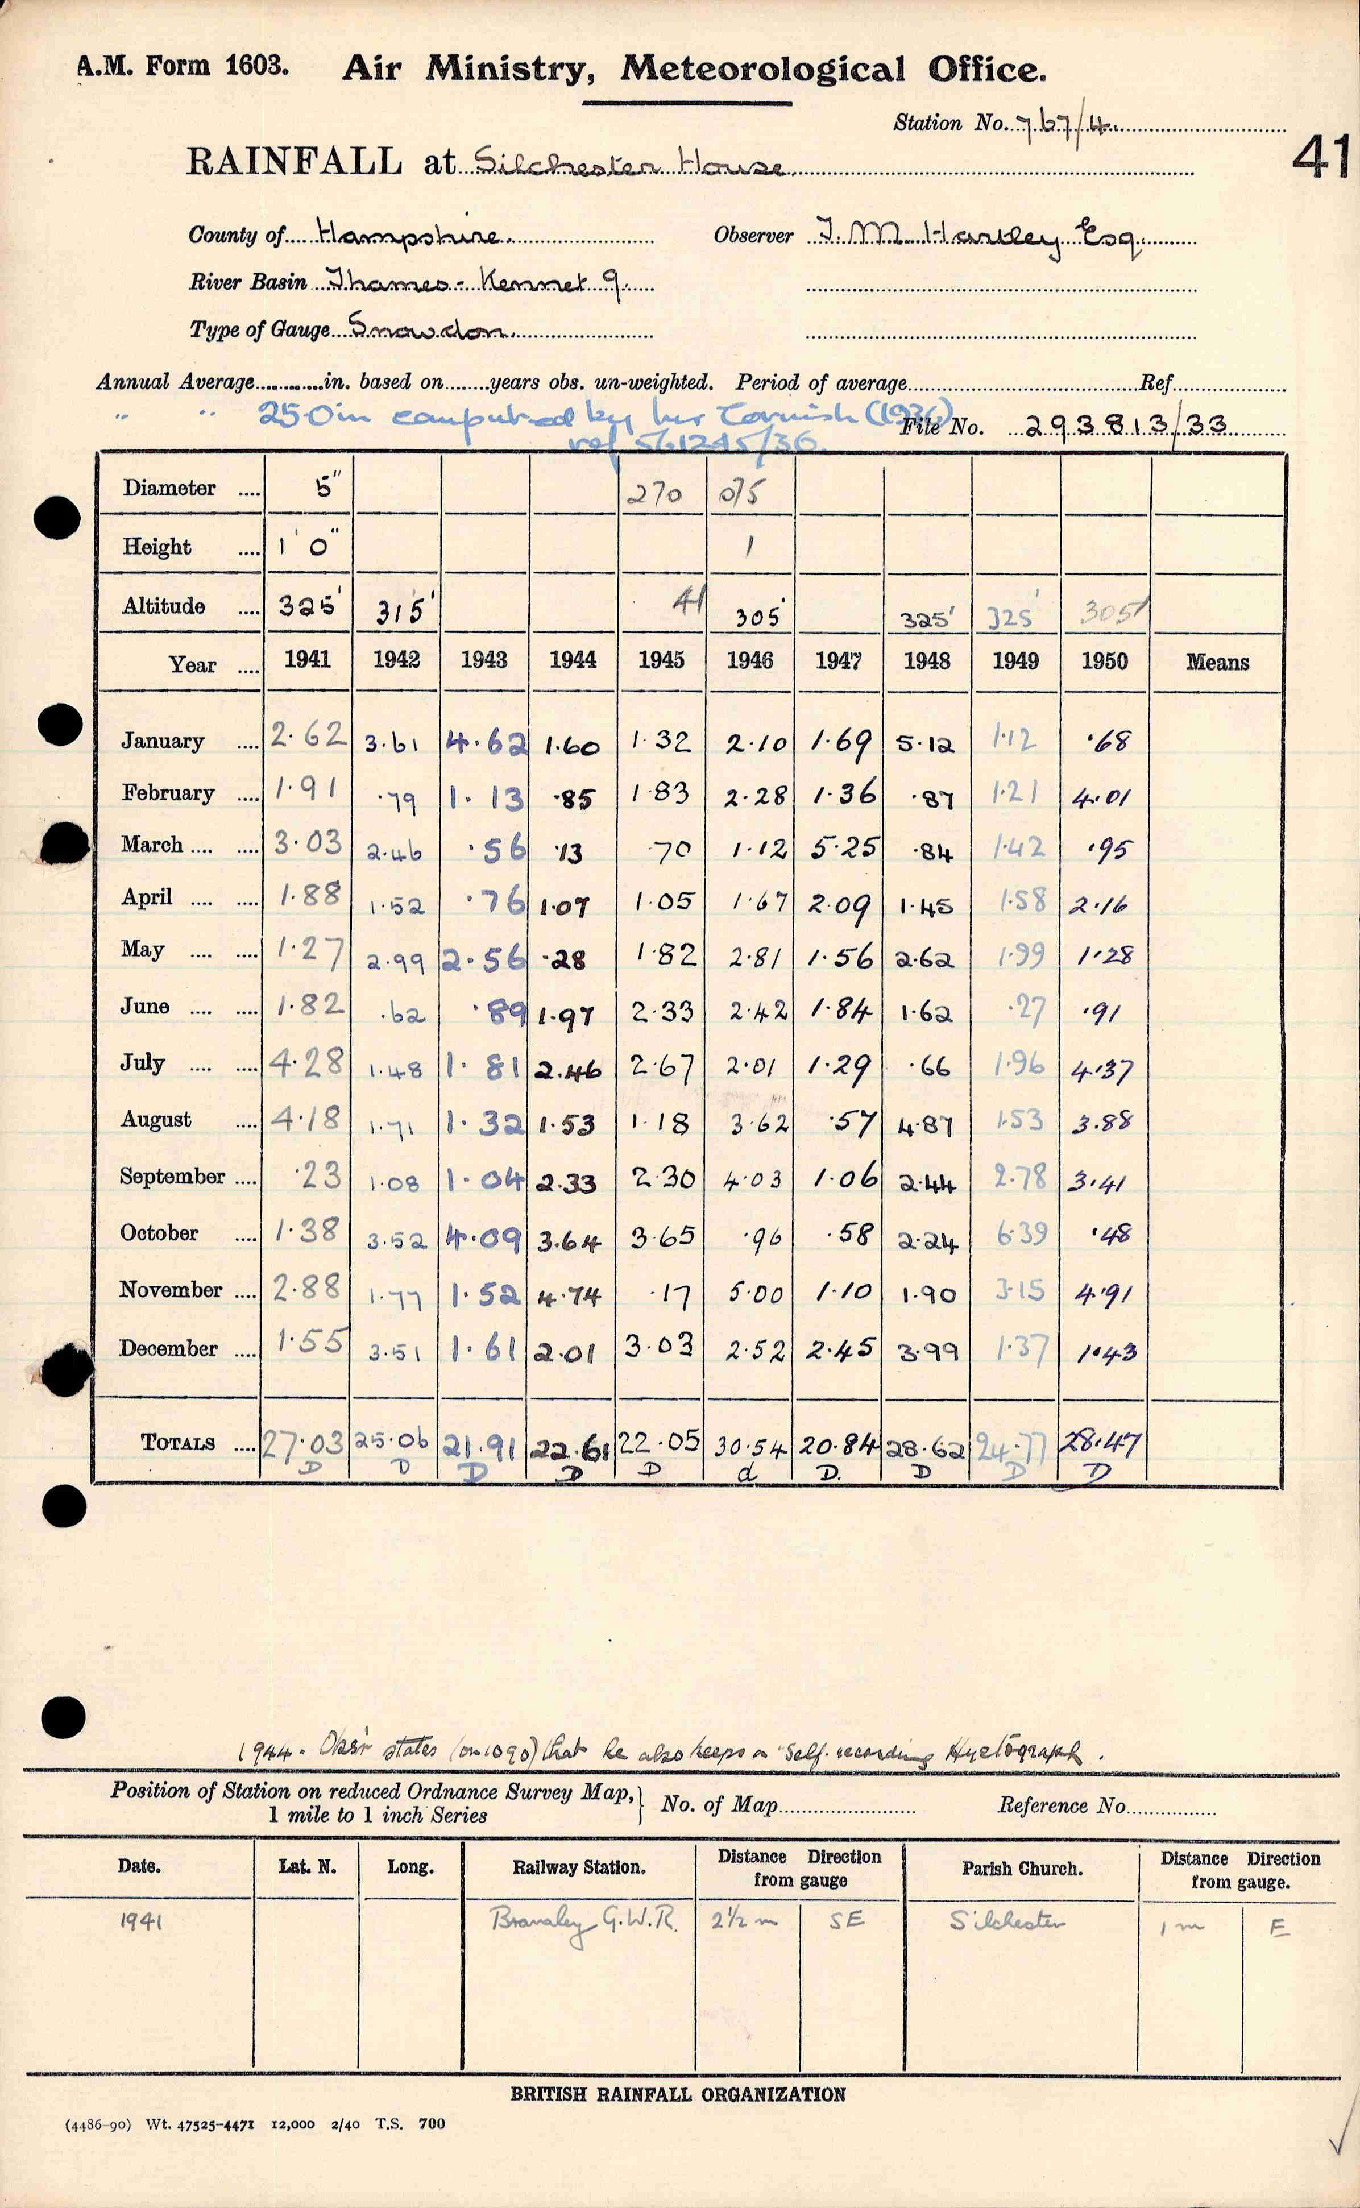 A.M. Form 1603. Air Ministry, Meteorological Office.
Station No. 767/4.
41
RAINFALL at Silchester House.
County of Hampshire. Observer J. M. Hartley Esq.
River Basin Thames - Kennet 9.
Type of Gauge Snowdon.
Annual Average............in. based on........years obs. un-weighted. Period of average............Ref............
" " 25.0in computed by Mr Cornish (1936)
File No. 293813/33
ref 561245/36.
Diameter .... 5" 270 075
Height .... 1' 0" 1
Altitude .... 325' 315' 41 305' 325' 325' 305'
Year .... 1941 1942 1943 1944 1945 1946 1947 1948 1949 1950 Means
January .... 2.62 3.61 4.62 1.60 1.32 2.10 1.69 5.12 1.12 .68
February .... 1.91 .79 1.13 .85 1.83 2.28 1.36 .87 1.21 4.01
March .... .... 3.03 2.46 .56 .13 .70 1.12 5.25 .84 1.42 .95
April .... .... 1.88 1.52 .76 1.07 1.05 1.67 2.09 1.45 1.58 2.16
May .... .... 1.27 2.99 2.56 .28 1.82 2.81 1.56 2.62 1.99 1.28
June .... .... 1.82 .62 .89 1.97 2.33 2.42 1.84 1.62 .27 .91
July .... .... 4.28 1.48 1.81 2.46 2.67 2.01 1.29 .66 1.96 4.37
August .... 4.18 1.71 1.32 1.53 1.18 3.62 .57 4.87 1.53 3.88
September .... .23 1.08 1.04 2.33 2.30 4.03 1.06 2.44 2.78 3.41
October .... 1.38 3.52 4.09 3.64 3.65 .96 .58 2.24 6.39 .48
November .... 2.88 1.77 1.52 4.74 .17 5.00 1.10 1.90 3.15 4.91
December .... 1.55 3.51 1.61 2.01 3.03 2.52 2.45 3.99 1.37 1.43
TOTALS .... 27.03 25.06 21.91 22.61 22.05 30.54 20.84 28.62 24.77 28.47
D D D D D d D. D D D
1944. Obs'r states (on 1090) that he also keeps a Self-recording Hyetograph.
Position of Station on reduced Ordnance Survey Map, } No. of Map............ Reference No............
1 mile to 1 inch Series
Date. Lat. N. Long. Railway Station. Distance Direction from gauge Parish Church. Distance Direction from gauge.
1941 Bramley G.W.R. 2½ m SE Silchester 1 m E
BRITISH RAINFALL ORGANIZATION
(4486-90) Wt. 47525-4471 12,000 2/40 T.S. 700